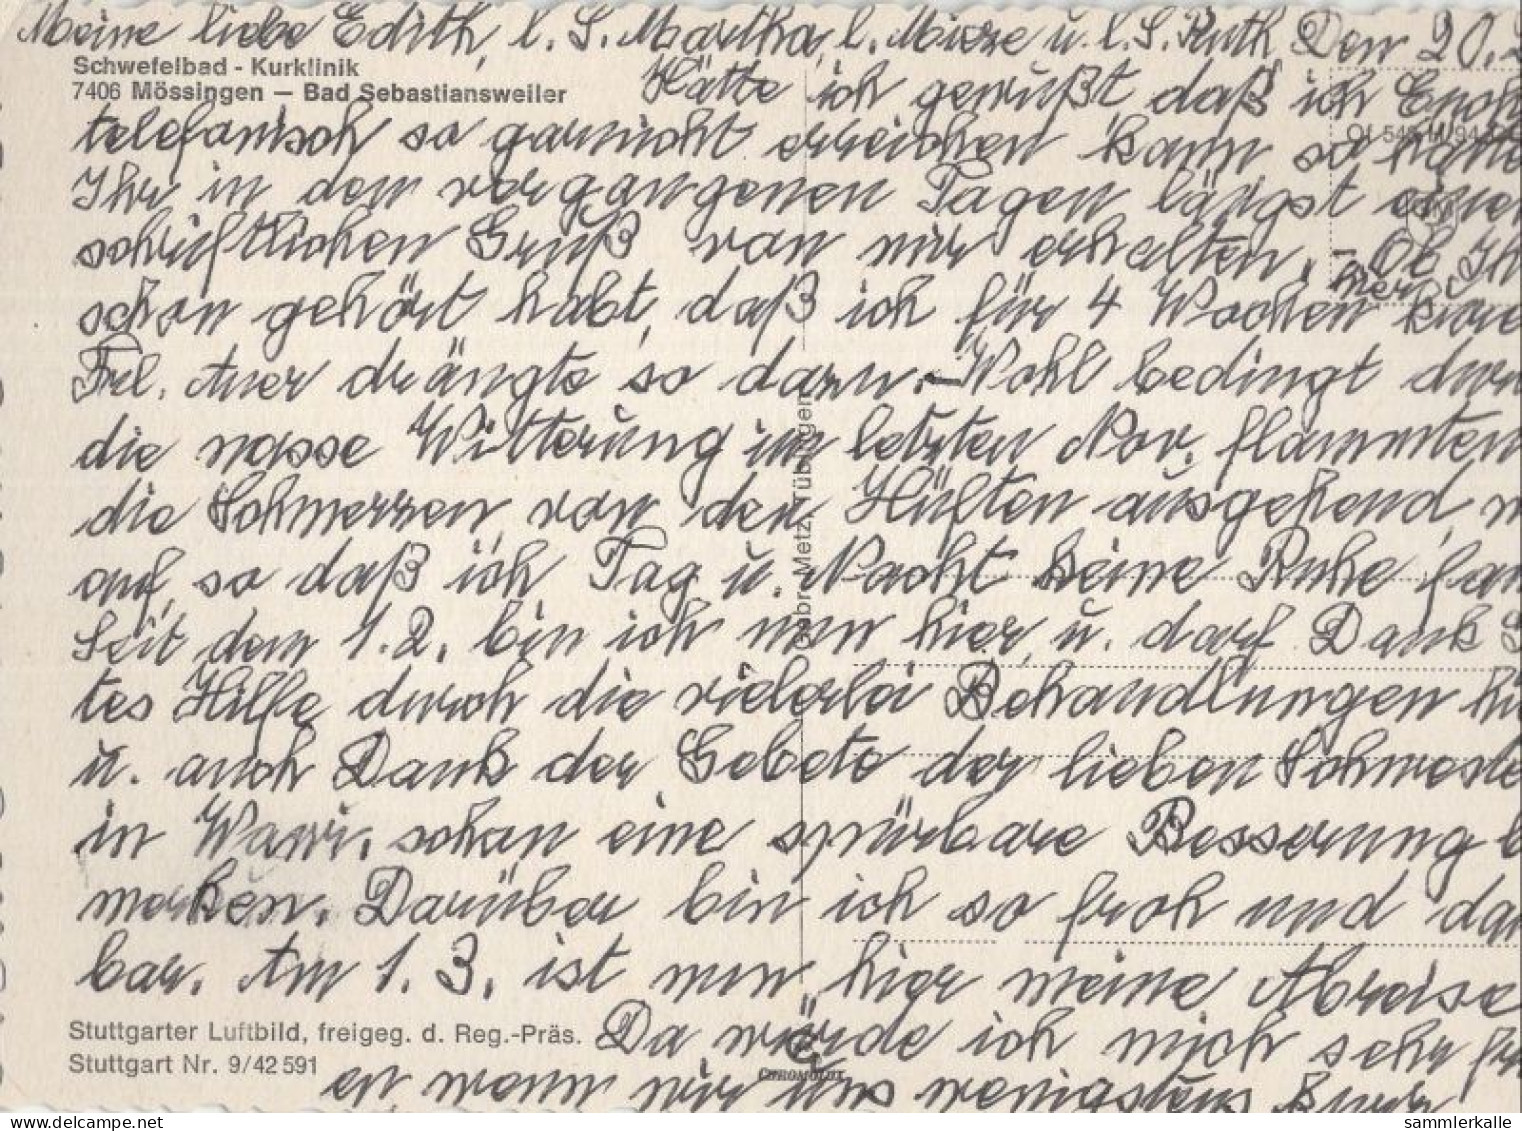 Meine liebe Edith, l. S. Martha, l. Mirze u. l. S. Ruth, Den 20.
Schwefelbad - Kurklinik
7406 Mössingen — Bad Sebastiansweiler
Hätte ich gewußt, daß ich Euch
telefonisch so garnicht erreichen kann, so hätte
Ihr in den vergangenen Tagen längst einen
schriftlichen Gruß von mir erhalten. - Ob Ihr
schon gehört habt, daß ich für 4 Wochen hier
Frl. Auer drängte so darin. - Wohl bedingt durch
die nasse Witterung im letzten Nov. flammten
die Schmerzen, von den Hüften ausgehend,
auf, so daß ich Tag u. Nacht keine Ruhe fan
Seit dem 1.2. bin ich nun hier, u. darf Dank
tes Hilfe durch die vielerlei Behandlungen hi
u. auch Dank der Gebete der lieben Schweste
in schon eine spürbare Besserung b
merken. Darüber bin ich so froh und dan
bar. Am 1.3. ist nun hier meine Abreise
Stuttgarter Luftbild, freigeg. d. Reg.-Präs.
Da würde ich mich sehr fr
Stuttgart Nr. 9/42 591
en wenn wir uns wenigstens kurz
Gebr. Metz, Tübingen
CHROMOLUX
sammlerkalle